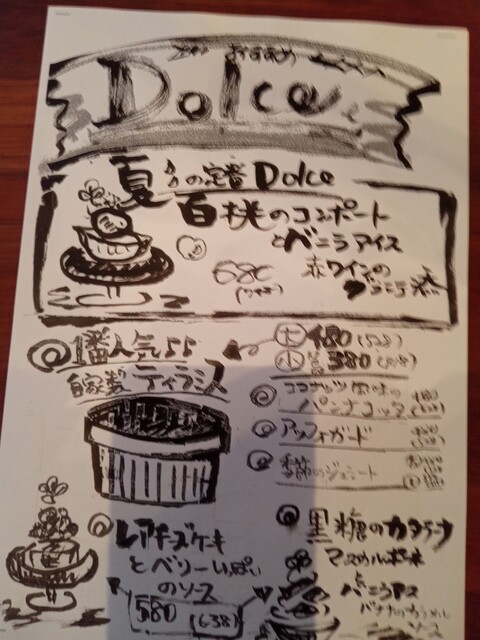 おすすめ
Dolce
夏の定番Dolce
白桃のコンポート
とバニラアイス
赤ワインの
グラニテ添
1番人気♪♪
自家製 ティラミス
大 480 (528)
小 380
ココナッツ風味の
パンナコッタ
アッフォガード
季節のジェラート
レアチーズケーキ
とベリーいっぱい
のソース
580 (638)
黒糖のカタラーナ
マスカルポーネ
と
バニラアイス